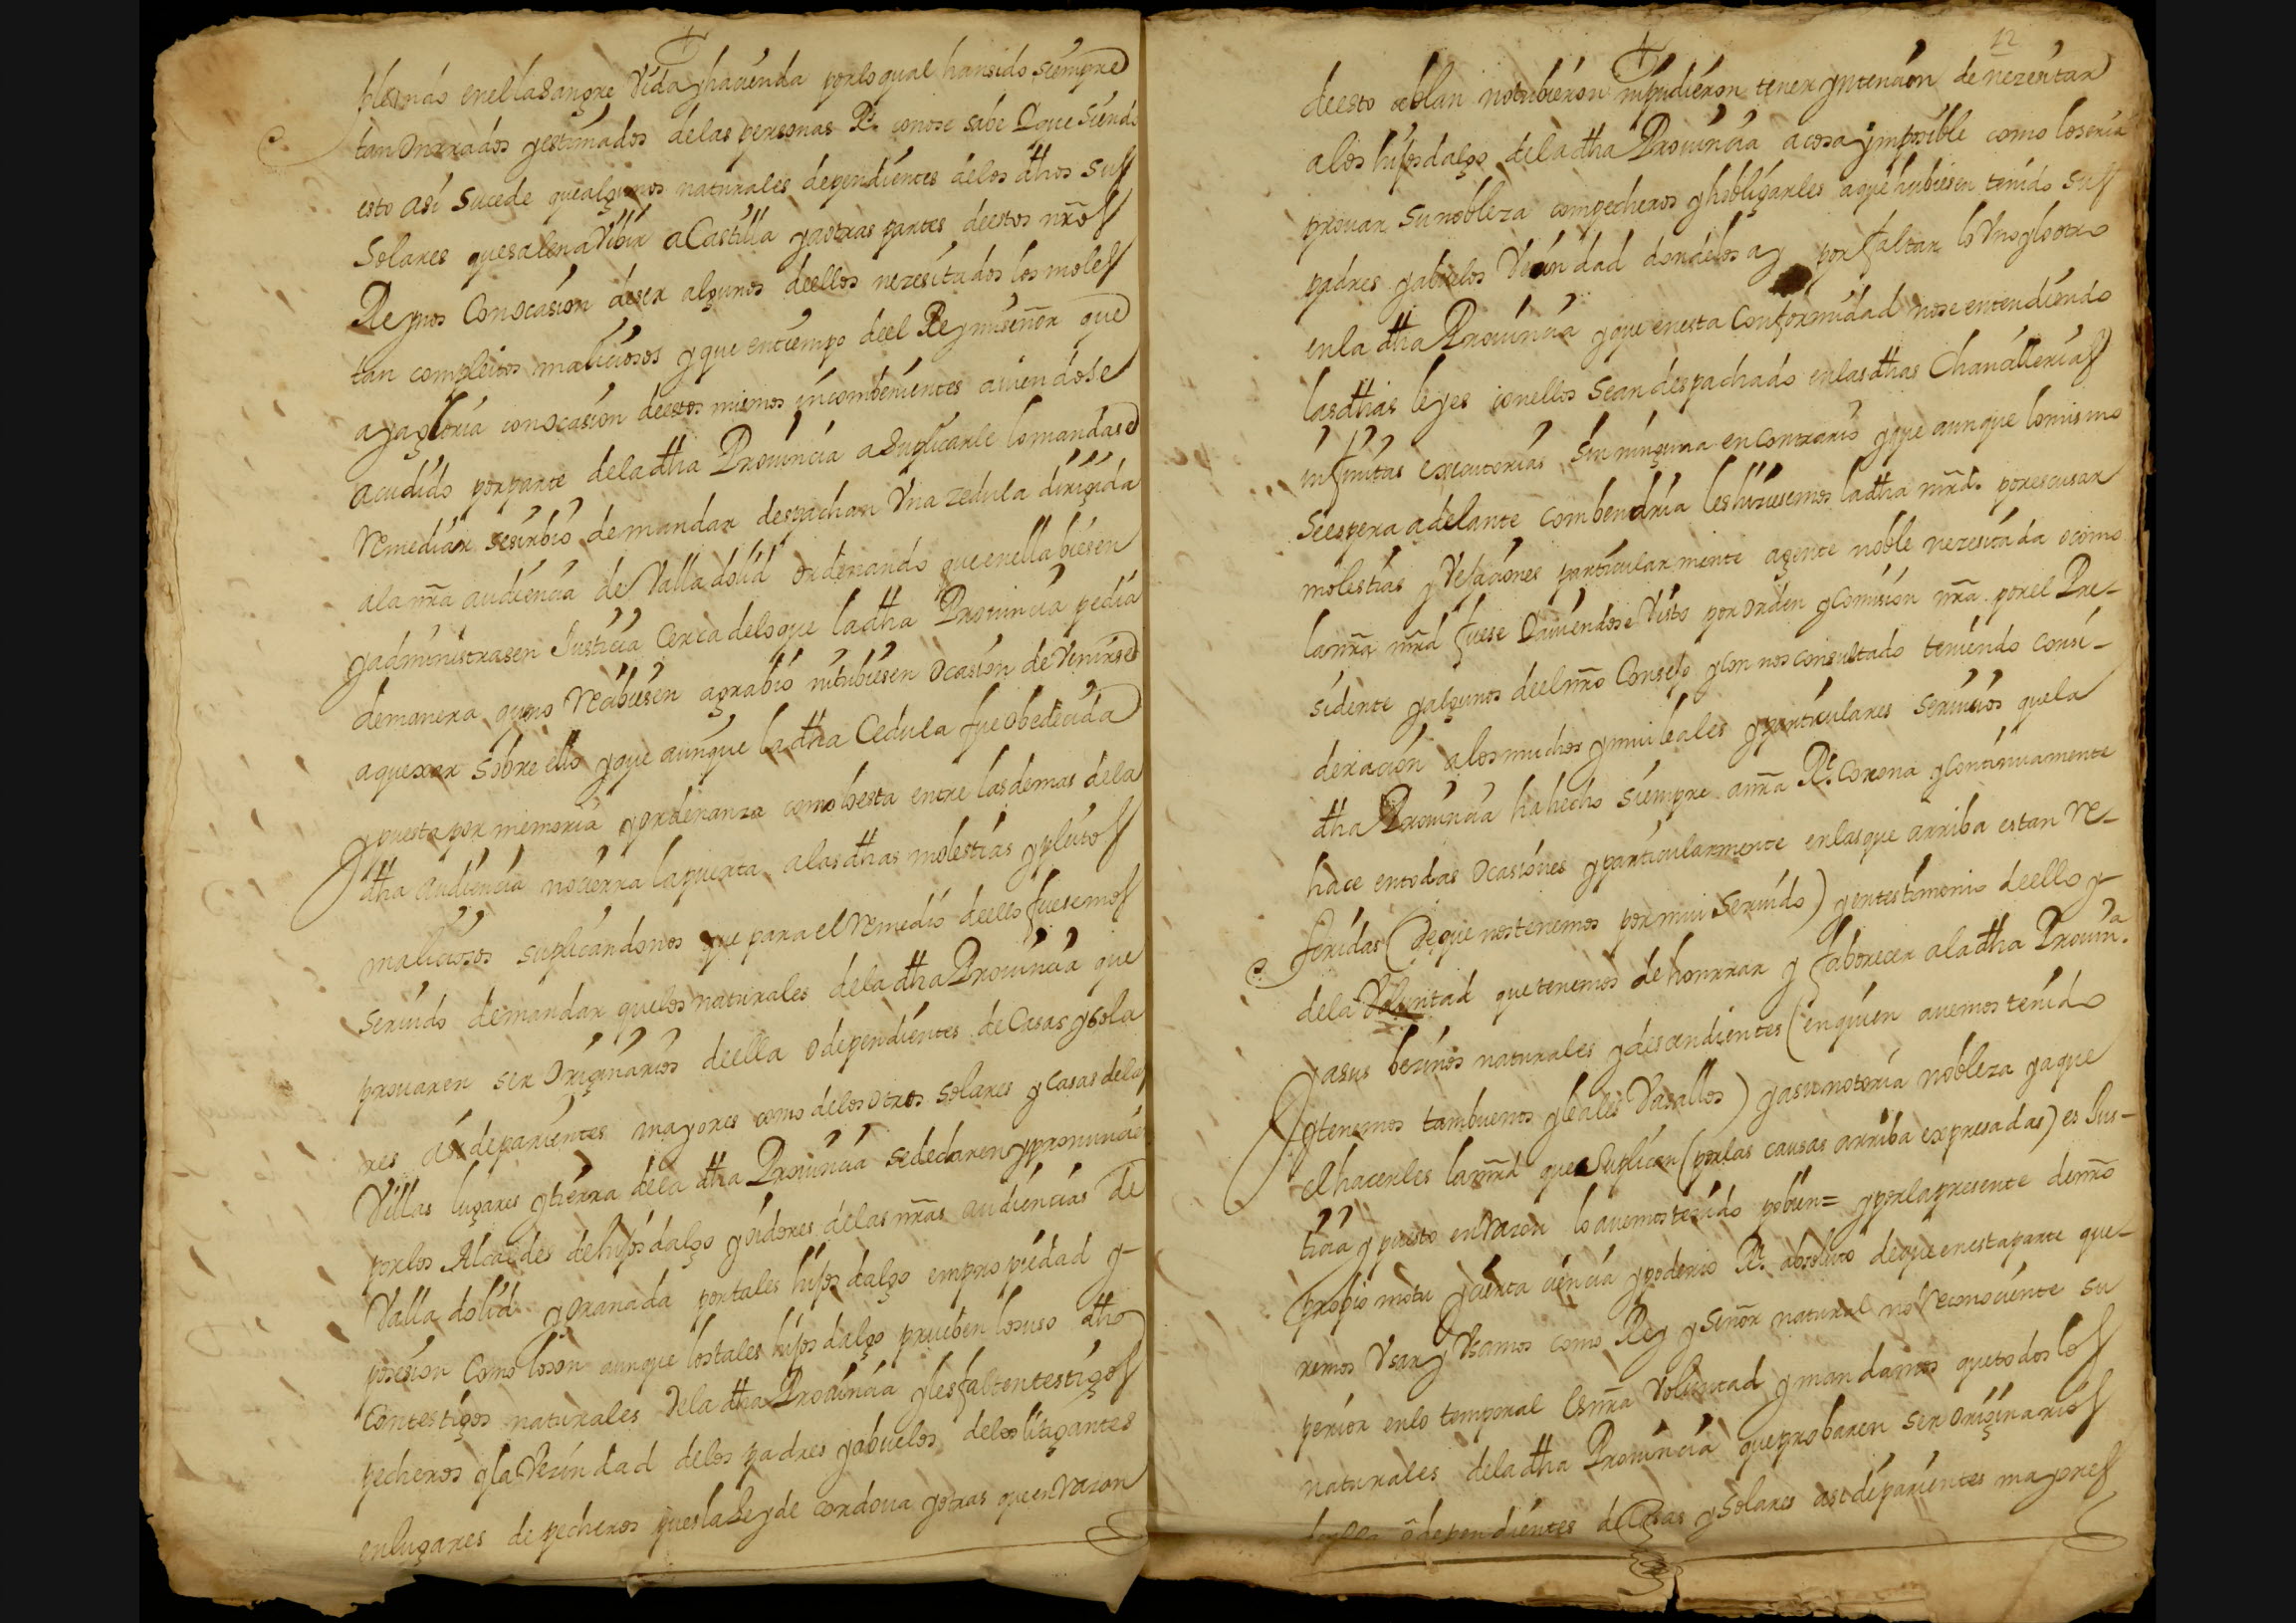 blemas en ella Sangre Vida y haçienda por lo qual han sido siempre
tan Onrrados y estimados de las personas Rs. conose sabe Que Siendo
esto así Sucede que algunos naturales dependientes de los dhos Sus
Solares que salen a Vibir a Castilla y a otras partes de estos nrõs
Reynos Con Ocasion de ser algunos de ellos nezesitados los moles
tan con pleitos maliciosos y que en tiempo de el Rey mi señor que
aya gloria con ocasion de estos mismos incombenientes aviendose
acudido por parte de la dha Provincia a Suplicarle lo mandase
Remediar se sirbio de mandar despachar Una zedula dirigida
a la nrã audiencia de Valladolid ordenando que en ella biesen
y administrasen Justicia Cerca de lo que la dha Provincia pedia
de manera que no Recibiesen agrabio ni tubiesen Ocasion de Venirse
a quexar sobre ello y que aunque la dha Cedula fue Obedecida
y puesta por memoria y ordenanza como lo esta entre las demas de la
dha audiencia no cierra la puerta a las dhas molestias y pleitos
maliciosos suplicandonos que para el Remedio de ello fuesemos
Seruido de mandar que los naturales de la dha Provincia que
prouaren ser Originarios de ella o dependientes de Casas y sola
res asi de parientes mayores como de los otros solares y casas de las
Villas lugares y tierra de la dha Provincia se declaren y pronuncien
por los Alcaldes de hijosdalgo y oidores de las nrãs audiencias de
Valladolid y Granada por tales hijosdalgo en propiedad y
posesion Como lo son aunque los tales hijosdalgo prueben lo suso dho
Con testigos naturales de la dha Provincia y les falten testigos
pecheros y la Vezindad de los padres y abuelos de los litigantes
en lugares de pecheros pues la Ley de cordova y otras que en Razon
12
de esto ablan no tubieron ni pudieron tener yntencion de nezesitar
a los hijosdalgo de la dha Provincia a cosa ymposible como lo seria
prouar su nobleza con pecheros y hobligarles a que hubiesen tenido sus
padres y abuelos Vezindad donde los ay por faltar lo Uno y lo otro
en la dha Provincia y que en esta Conformidad no se entendiendo
las dhas leyes con ellos se an despachado en las dhas Chancillerias
infinitas executorias sin ninguna en contrario y que aunque lo mismo
se espera adelante combendria les hiziesemos la dha mrd. por escusar
molestias y Vejaciones particularmente a gente noble nezesitada o como
la nrã mrd fuese Y aviendose Visto por orden y comision nrã por el Pre-
sidente y algunos de el nrõ Consejo y con nos consultado teniendo consi-
deracion a los muchos y mui leales y particulares seruicios que la
dha Provincia ha hecho siempre a nrã Rl. Corona y continuamente
hace en todas Ocasiones y particularmente en las que arriba estan Re-
feridas (de que nos tenemos por mui Seruido) y en testimonio de ello y
de la Voluntad que tenemos de honrrar y faborecer a la dha Provina.
y a sus bezinos naturales y descendientes (en quien auemos tenido
y tenemos tam buenos y leales Vasallos) y a su notoria nobleza y a que
el hacerles la mrd que Suplican (por las causas arriba expresadas) es Jus-
ticia y puesto en Razon lo auemos tenido por bien = y por la presente de nrõ
propio motu y cierta ciencia y poderio Rl. absoluto de que en esta parte que-
remos Usar y Usamos como Rey y Señor natural no Reconociente su
perior en lo temporal Es nrã Voluntad y mandamos que todos los
naturales de la dha Provincia que probaren ser originarios
de ella o dependientes de Casas y Solares asi de parientes mayores